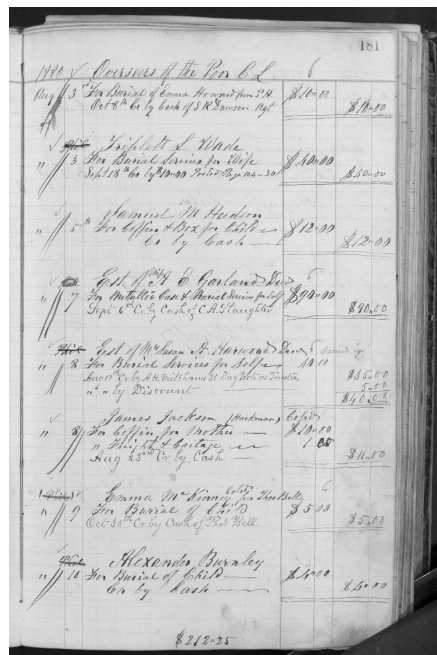 181
1890 Overseers of the Poor C L 6
Aug 3rd For Burial of Emma Howard from P.H. $10.00
Oct 8th Cr by Cash of S R Dawson Agt $10.00
Triplett L Wade
" 3 For Burial Services for Wife $40.00
Sept 18th Co by $10.00 Posted Page 124-30 $40.00
Samuel M Hudson
" 5th For Coffin & Box for Child $12.00
Co by Cash $12.00
Est of A E Garland Decd 6
" 7 For Metallic Case & Burial Services for Self $90.00
Sept 6th Cr by Cash of C A Slaughter $90.00
Est of Mrs Susan A. Harwood Decd 6
" 8 For Burial Services for Self 40.00
Aug 19th Cr by A.H. 30 Day Note as Trustee $35.00
" " by Discount 5.00
$40.00
James Jackson (Hackman) Cold
" 8 For Coffin for Mother $10.00
" Freight & Cartage 1.00
Aug 23rd Cr. by Cash $11.00
Emma McKinney Cold for Thos Bell 6
" 9 For Burial of Child $5.00
Oct 30th Cr by Cash of Thos Bell $5.00
Alexander Burnley
" 10 For Burial of Child $4.00
Cr by Cash $4.00
$212.25